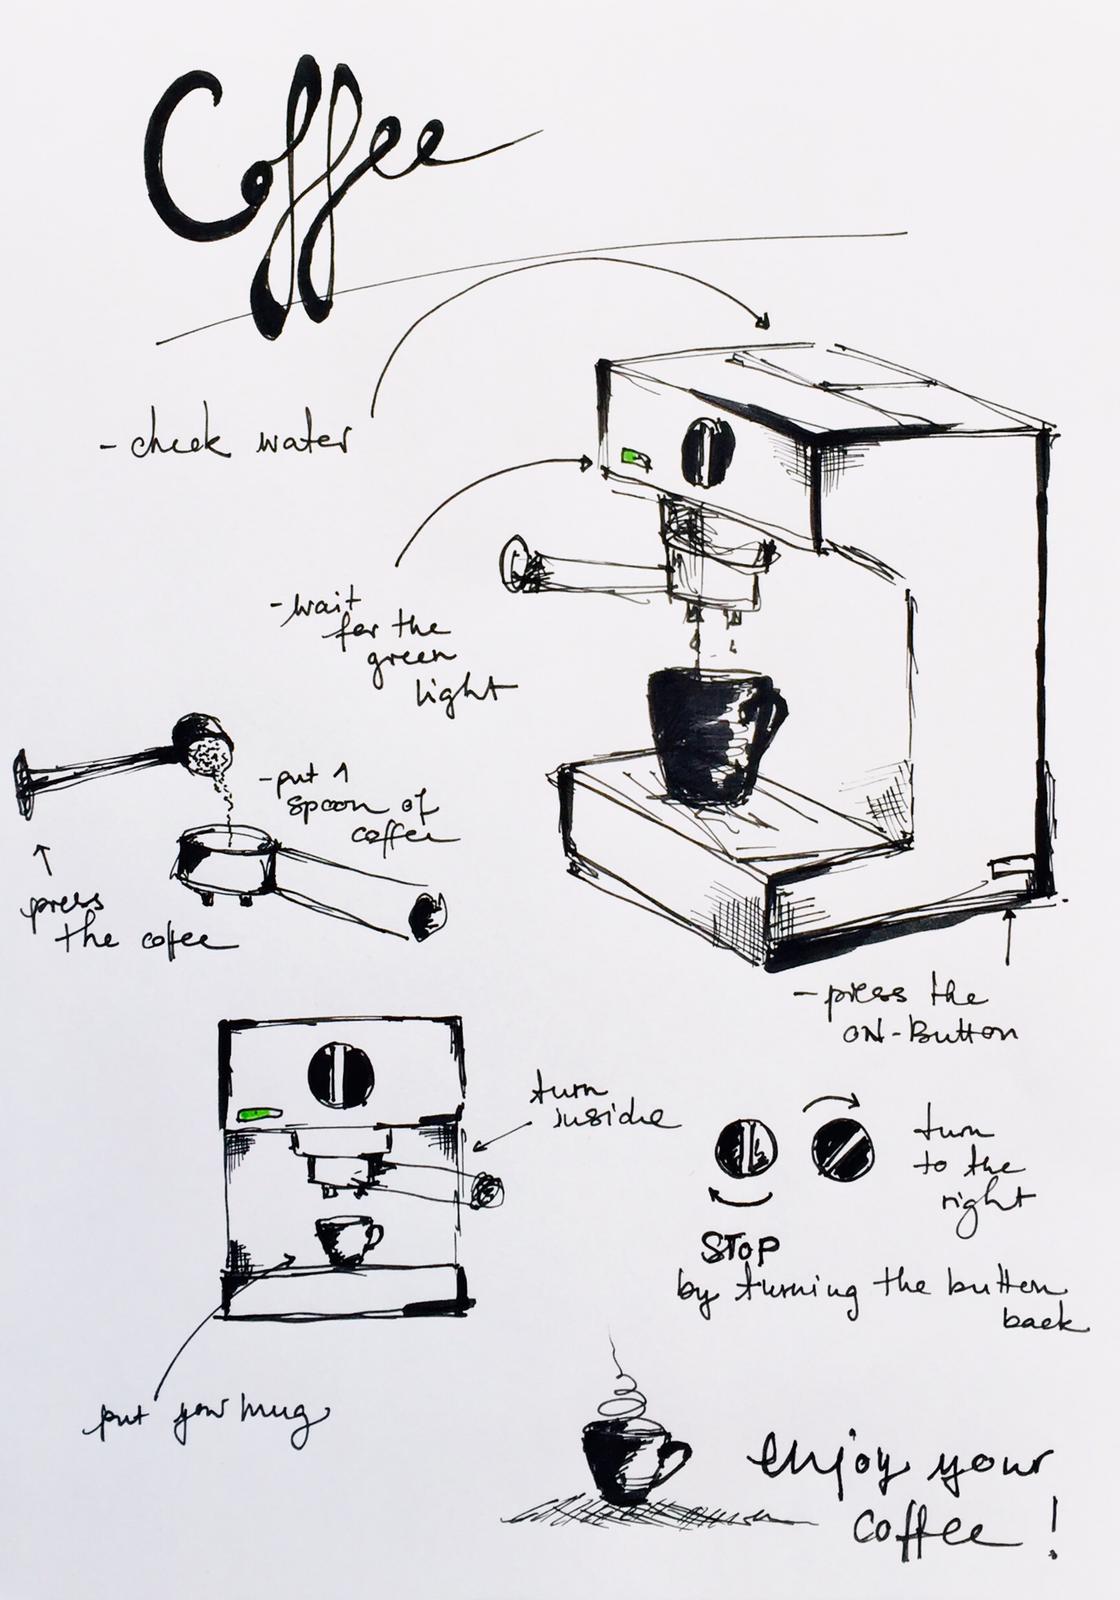 Coffee
- check water
- wait
for the
green
light
- put 1
spoon of
coffee
press
the cofee
- press the
ON-Button
turn
inside
turn
to the
right
STOP
by turning the button
back
put your mug
enjoy your
coffee !